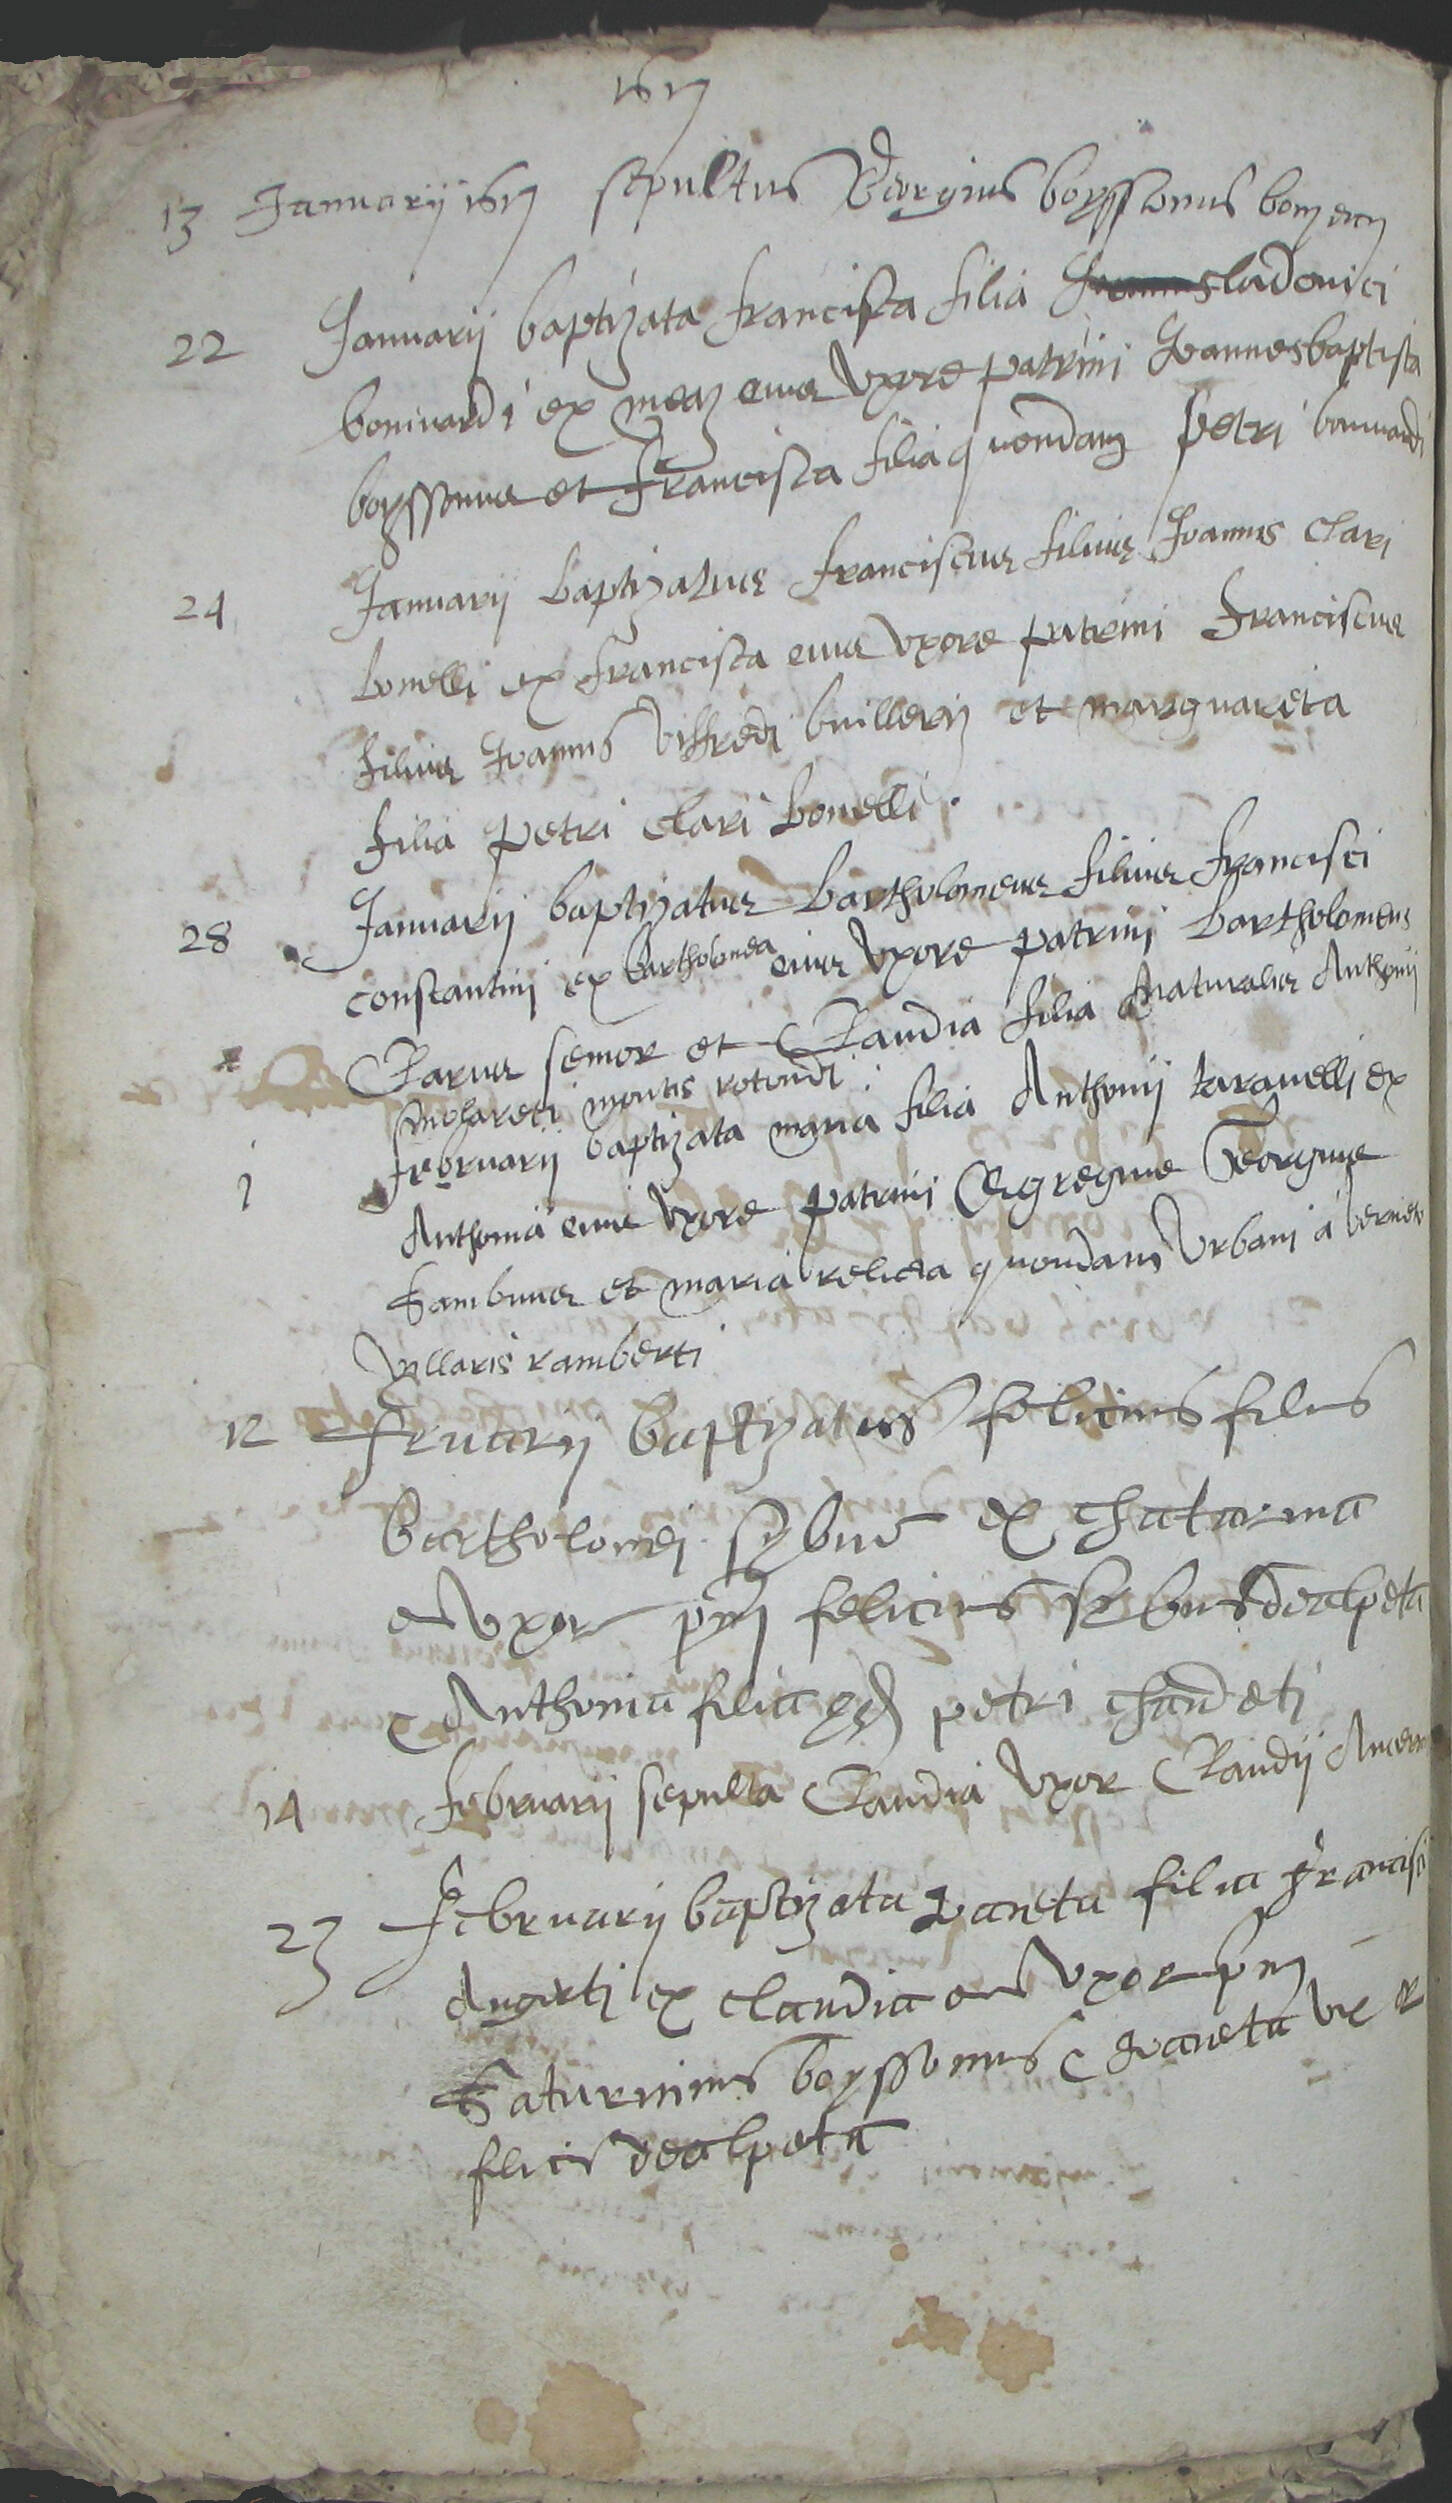 1617
13 Januarij 1617 sepultus Georgius boyssonus
22 Januarij baptizata francisca filia ladouici
boniuardi ex meaz eius Vxore patrini Joannesbaptista
boyssonus et Francisca filia quondam Petri boniuardi
24 Januarij baptizatus franciscus filius Joannis Clari
bonelli ex francisca eius Vxore patrini Franciscus
filius Joannis Viffredi buillerij et marguareta
filia Petri Clari bonelli .
28 Januarij baptizatus bartholomeus filius francisci
constantini ex bartholomea eius Vxore patrini bartholomeus
Clarus senior et Claudia filia Naturalis Anthonij
molareti montis rotondi .
j februarij baptizata maria filia Anthonij tarauelli ex
Anthonia eius Vxore patrini Egregius Georgius
Sambuus et maria relicta quondam Vrbani a verneto
Vyllaris ramberti
12 fruarij baptizatus felicius filius
bartholomej sybue ex chatarina
e Vxor pnj felicius sybus dealpeta
c Anthonia filia qd petri chandeti
14 februarij sepulta Claudia Vxor Claudij
23 Februarij baptizata Joaneta filia francisci
Angirtj ex claudia e Vxor pnj
Saturninus boyssonus c Joaneta Vx or
felicis dealpeta